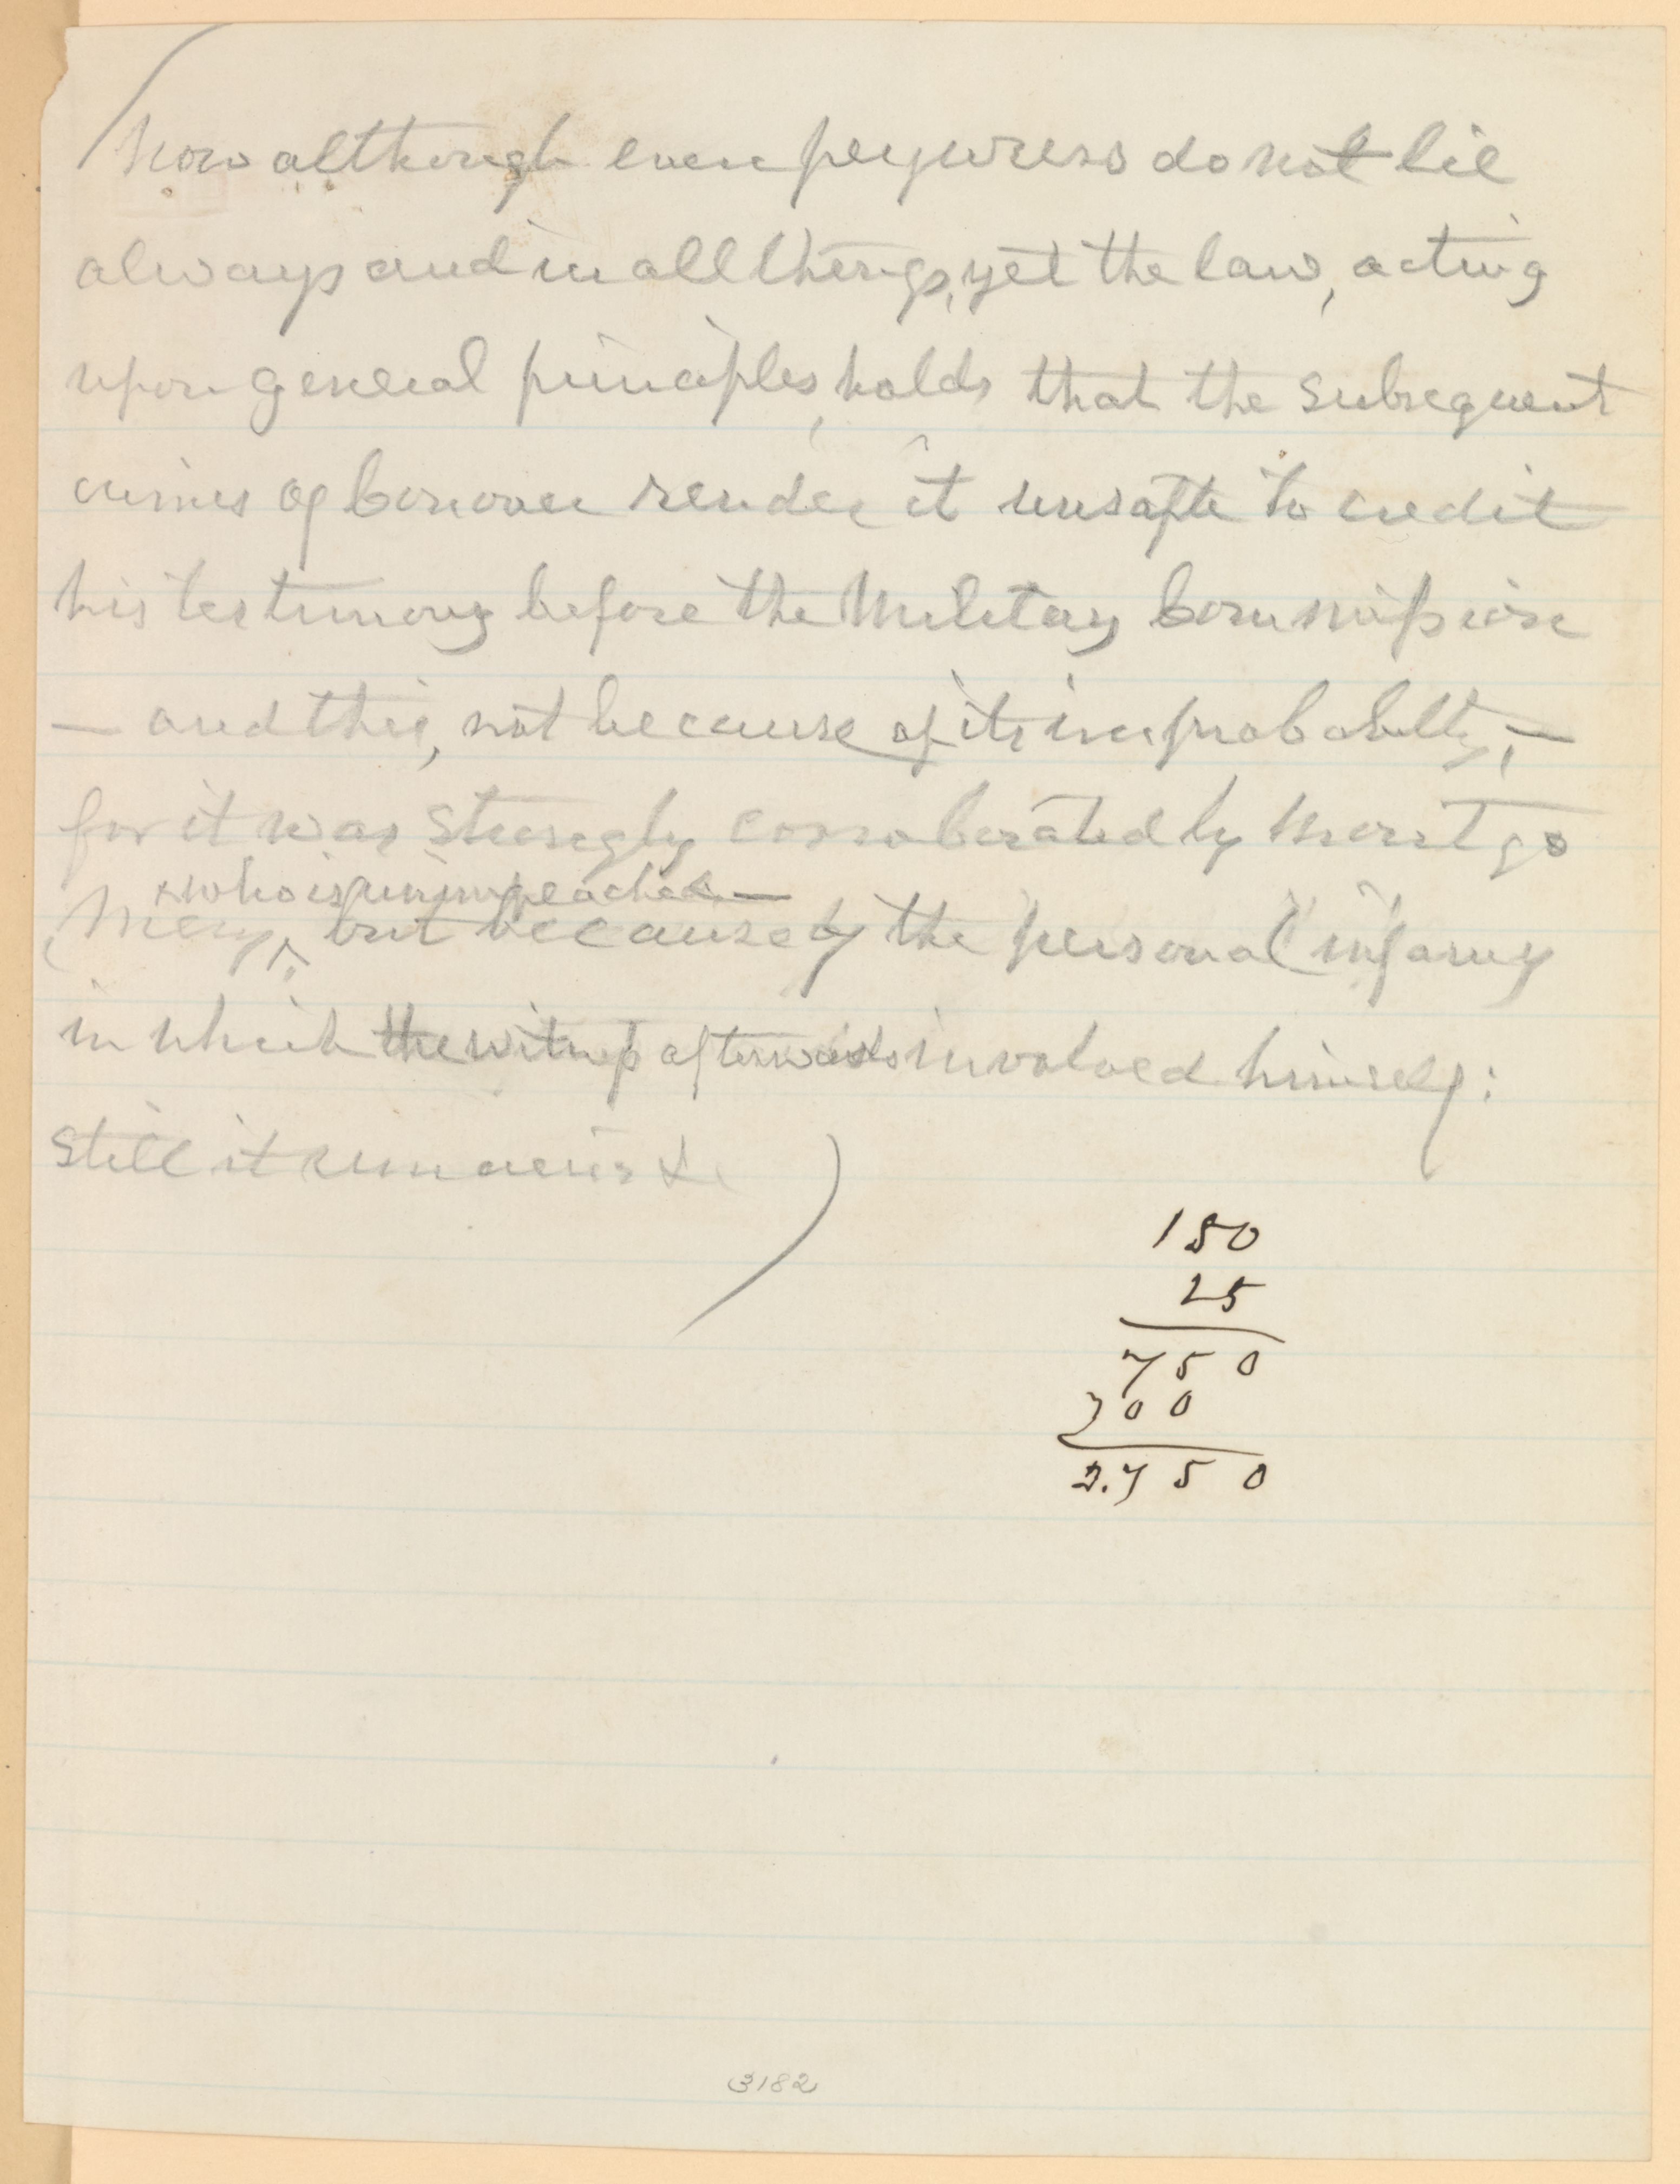 Now although even perjurers do not lie
always and in all things, yet the law, acting
upon general principles, holds that the subsequent
crimes of Conover render it unsafe to credit
his testimony before the Military Commission
— and this, not because of its improbability, —
for it was strongly corroborated by Merritt &
who is unimpeached —
Mery, but because of the personal infamy
in which the witness afterwards involved himself:
still it remains &c
150
25
750
300
3.750
3182